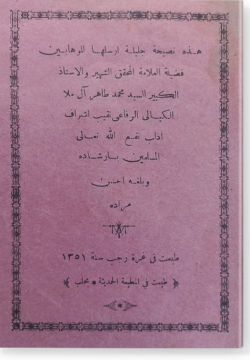 هذه نصيحة جليلة ارسلها للوهابيين
فضيلة العلامة المحقق الشهير والاستاذ
الكبير السيد محمد طاهر آل ملا
الكيالي الرفاعي نقيب اشراف
ادلب نفع الله تعالى
المسلمين بارشاده
وبلغه احسن
مراده
طبعت في غرة رجب سنة ١٣٥١
﴿ طبعت في المطبعة الحديثة * بحلب ﴾